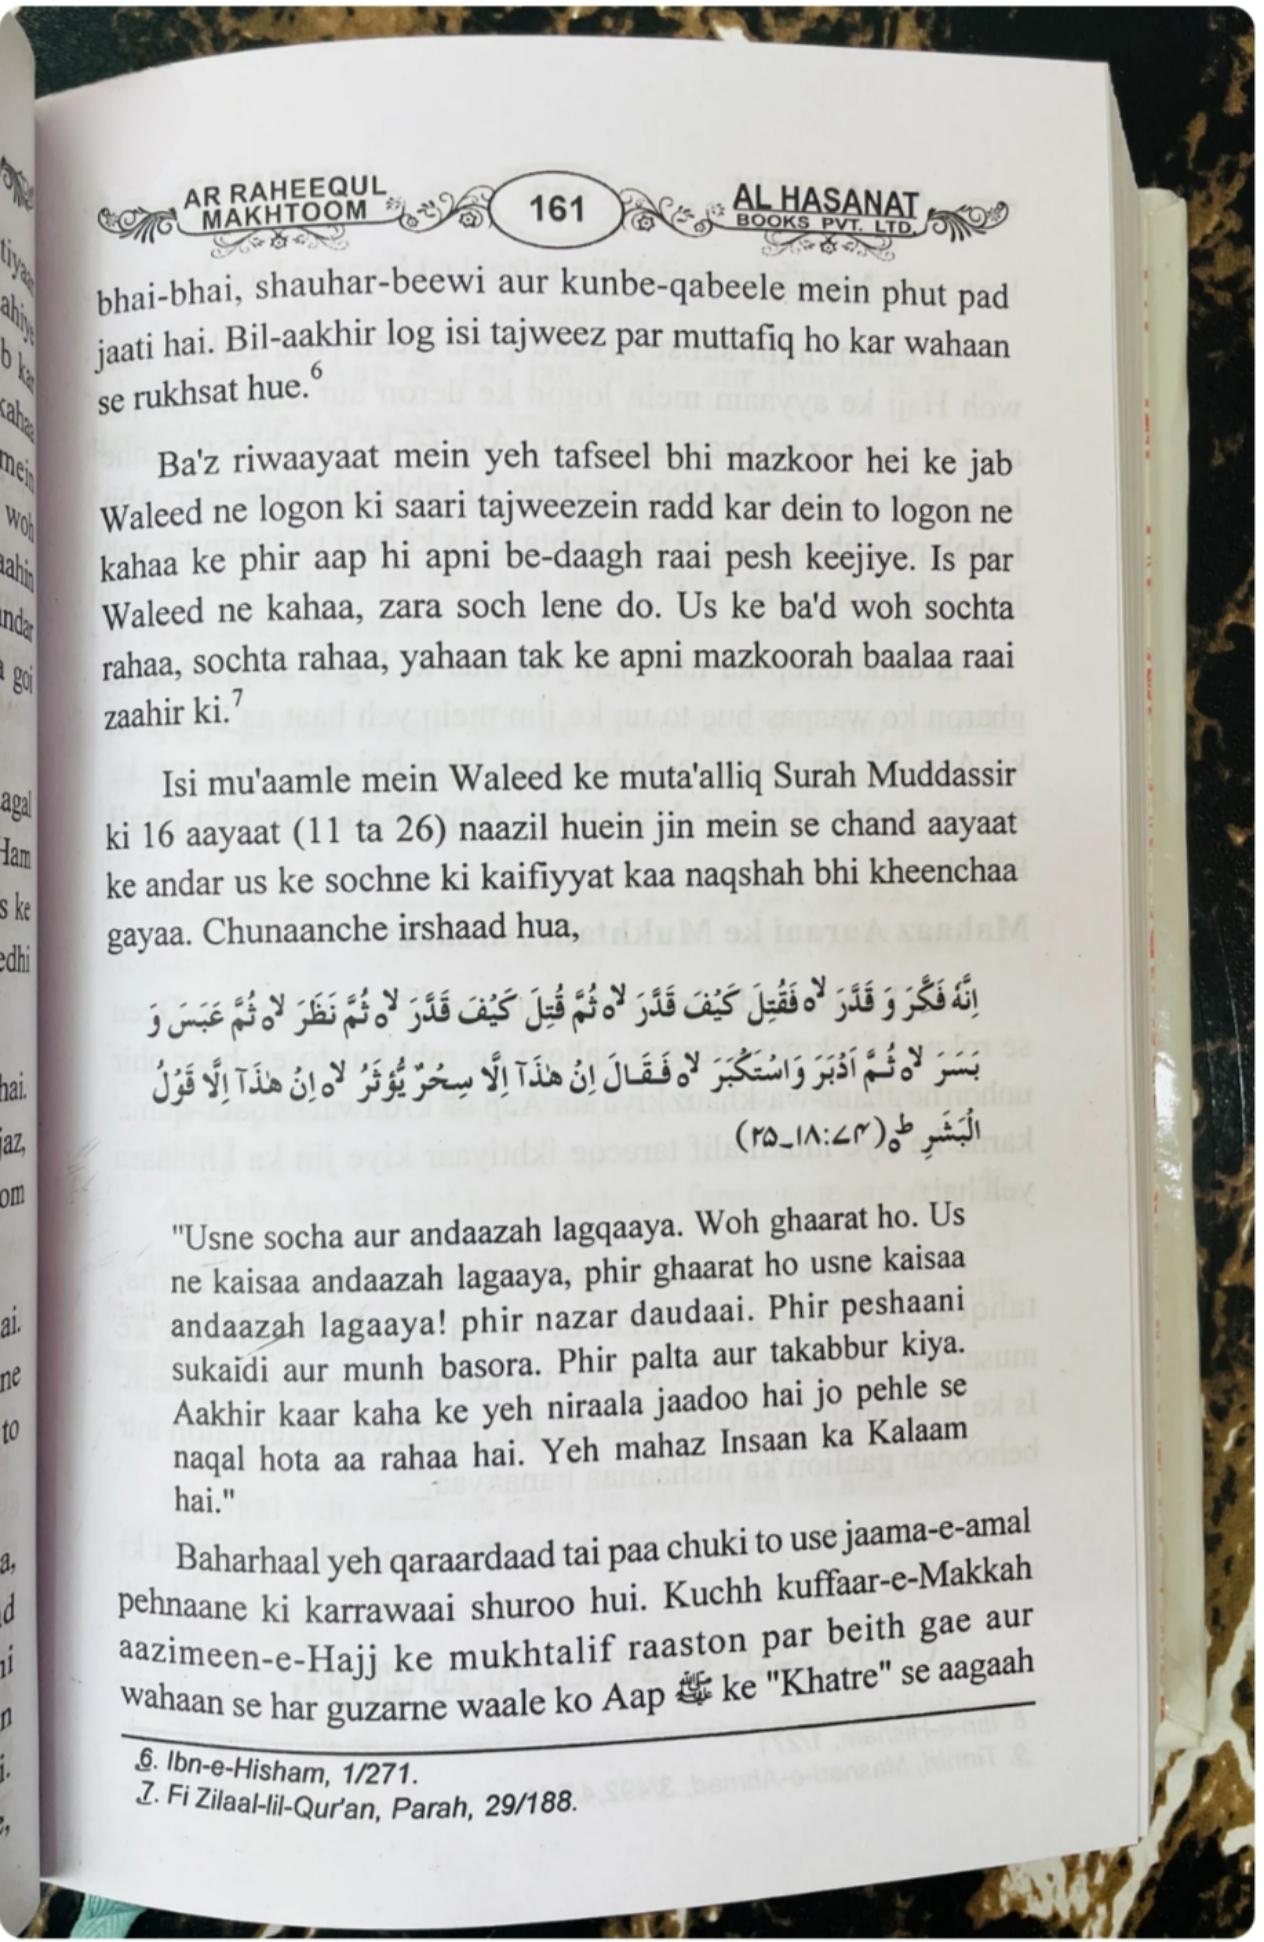 AR RAHEEQUL
MAKHTOOM
161
AL HASANAT
BOOKS PVT. LTD.
bhai-bhai, shauhar-beewi aur kunbe-qabeele mein phut pad
jaati hai. Bil-aakhir log isi tajweez par muttafiq ho kar wahaan
se rukhsat hue.6
Ba'z riwaayaat mein yeh tafseel bhi mazkoor hei ke jab
Waleed ne logon ki saari tajweezein radd kar dein to logon ne
kahaa ke phir aap hi apni be-daagh raai pesh keejiye. Is par
Waleed ne kahaa, zara soch lene do. Us ke ba'd woh sochta
rahaa, sochta rahaa, yahaan tak ke apni mazkoorah baalaa raai
zaahir ki.7
Isi mu'aamle mein Waleed ke muta'alliq Surah Muddassir
ki 16 aayaat (11 ta 26) naazil huein jin mein se chand aayaat
ke andar us ke sochne ki kaifiyyat kaa naqshah bhi kheenchaa
gayaa. Chunaanche irshaad hua,
اِنَّهٗ فَكَّرَ وَ قَدَّرَ لا ہ فَقُتِلَ كَيْفَ قَدَّرَ لا ہ ثُمَّ قُتِلَ كَيْفَ قَدَّرَ لا ہ ثُمَّ نَظَرَ لا ہ ثُمَّ عَبَسَ وَ
بَسَرَ لا ہ ثُمَّ اَدْبَرَ وَاسْتَكْبَرَ لا ہ فَقَالَ اِنْ هٰذَآ اِلَّا سِحْرٌ يُّؤْثَرُ لا ہ اِنْ هٰذَآ اِلَّا قَوْلُ
الْبَشَرِ ط ہ (۷۴:۱۸ـ۲۵)
"Usne socha aur andaazah lagqaaya. Woh ghaarat ho. Us
ne kaisaa andaazah lagaaya, phir ghaarat ho usne kaisaa
andaazah lagaaya! phir nazar daudaai. Phir peshaani
sukaidi aur munh basora. Phir palta aur takabbur kiya.
Aakhir kaar kaha ke yeh niraala jaadoo hai jo pehle se
naqal hota aa rahaa hai. Yeh mahaz Insaan ka Kalaam
hai."
Baharhaal yeh qaraardaad tai paa chuki to use jaama-e-amal
pehnaane ki karrawaai shuroo hui. Kuchh kuffaar-e-Makkah
aazimeen-e-Hajj ke mukhtalif raaston par beith gae aur
wahaan se har guzarne waale ko Aap ﷺ ke "Khatre" se aagaah
6. Ibn-e-Hisham, 1/271.
7. Fi Zilaal-lil-Qur'an, Parah, 29/188.